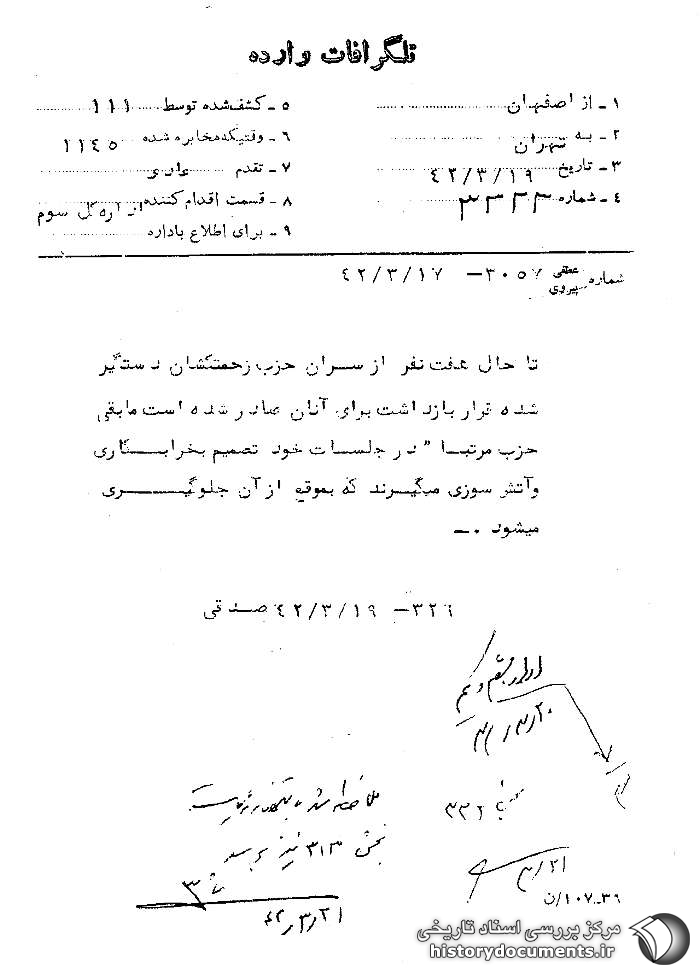 تلگرافات وارده
۱ ـ از اصفهان
۲ ـ به تهران
۳ ـ تاریخ ۴۲/۳/۱۹
۴ ـ شماره ۳۳۳۳
۵ ـ کشف شده توسط ۱۱۱
۶ ـ وقتیکه مخابره شده ۱۱۴۵
۷ ـ تقدم عادی
۸ ـ قسمت اقدام کننده اداره کل سوم
۹ ـ برای اطلاع باداره
شماره عطفی پیروی ۳۰۵۷ ـ ۴۲/۳/۱۷
تا حال هفت نفر از سران حزب زحمتکشان دستگیر
شده قرار بازداشت برای آنان صادر شده است مابقی
حزب مرتبا" در جلسات خود تصمیم بخرابکاری
وآتش سوزی میگیرند که بموقع از آن جلوگیری
میشود ۰ـ
۳۲۶ ـ ۴۲/۳/۱۹ صدقی
بخش ۳۳۲
بخش ۳۱۳ نیز برسد
۴۲/۳/۲۱
۳/۲۱
۳۶-۱۰۷/ن
مرکز بررسی اسناد تاریخی
historydocuments.ir